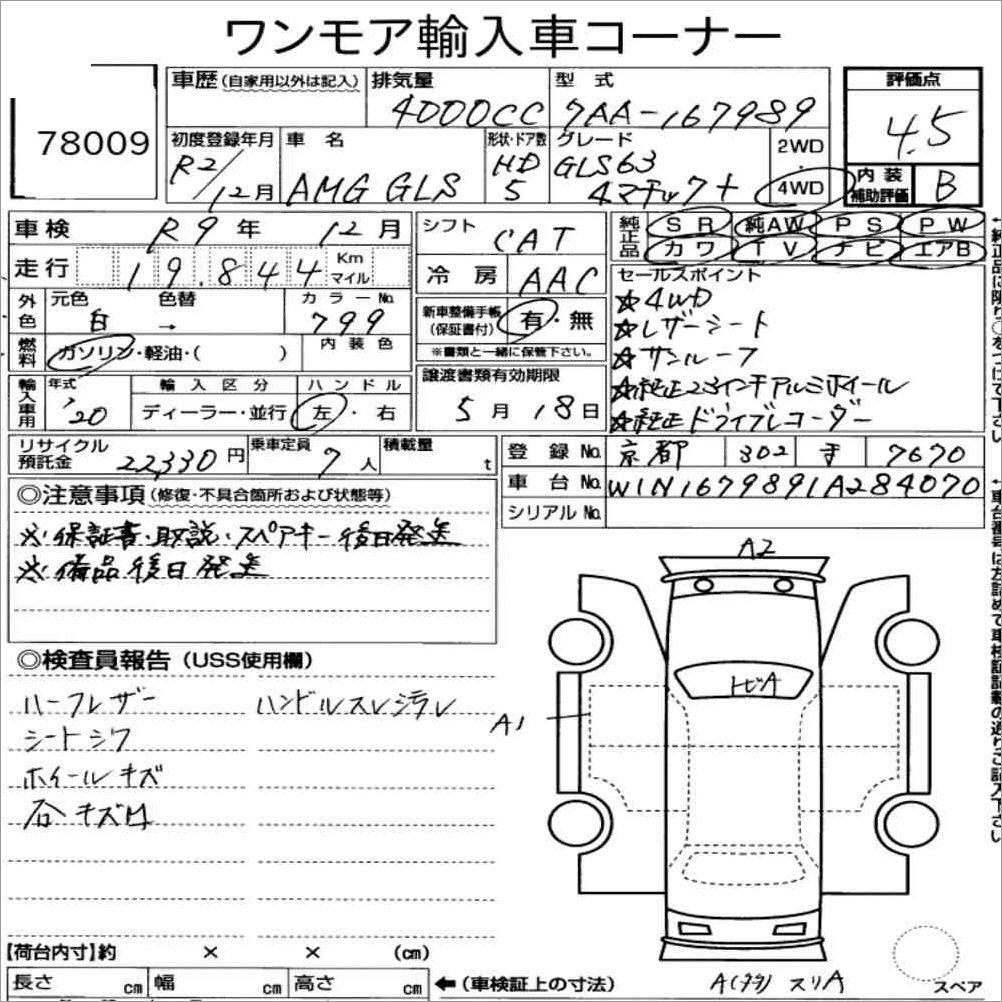 ワンモア輸入車コーナー
78009
車歴(自家用以外は記入)
排気量 4000CC
型式 7AA-167989
評価点 4.5
初度登録年月 R2/12月
車名 AMG GLS
形状・ドア数 HD 5
グレード GLS63 4マチック+
2WD・4WD
内装補助評価 B
車検 R9年 12月
シフト CAT
純正品 SR 純AW PS PW
カワ TV ナビ エアB
走行 19.844 Km マイル
冷房 AAC
セールスポイント
☆4WD
☆レザーシート
☆サンルーフ
☆純正23インチアルミホイール
☆純正ドライブレコーダー
外色 元色 白 → 色替
カラーNo. 799
新車整備手帳(保証書付) 有・無
※書類と一緒に保管下さい。
燃料 ガソリン・軽油・( )
内装色
輸入車用 年式 '20
輸入区分 ディーラー・並行
ハンドル 左・右
譲渡書類有効期限
5月 18日
リサイクル預託金 22,330円
乗車定員 7人
積載量 t
登録No. 京都 302 7670
車台No. W1N1679891A284070
シリアルNo.
◎注意事項(修復・不具合箇所および状態等)
※保証書・取説・スペアキー後日発送
※備品後日発送
◎検査員報告(USS使用欄)
ハーフレザー
ハンドルスレシラレ
シートシワ
ホイールキズ
石キズ
A2
トビA
A1
【荷台内寸】約 × × (cm)
長さ cm 幅 cm 高さ cm
←(車検証上の寸法)
スリA
スペア